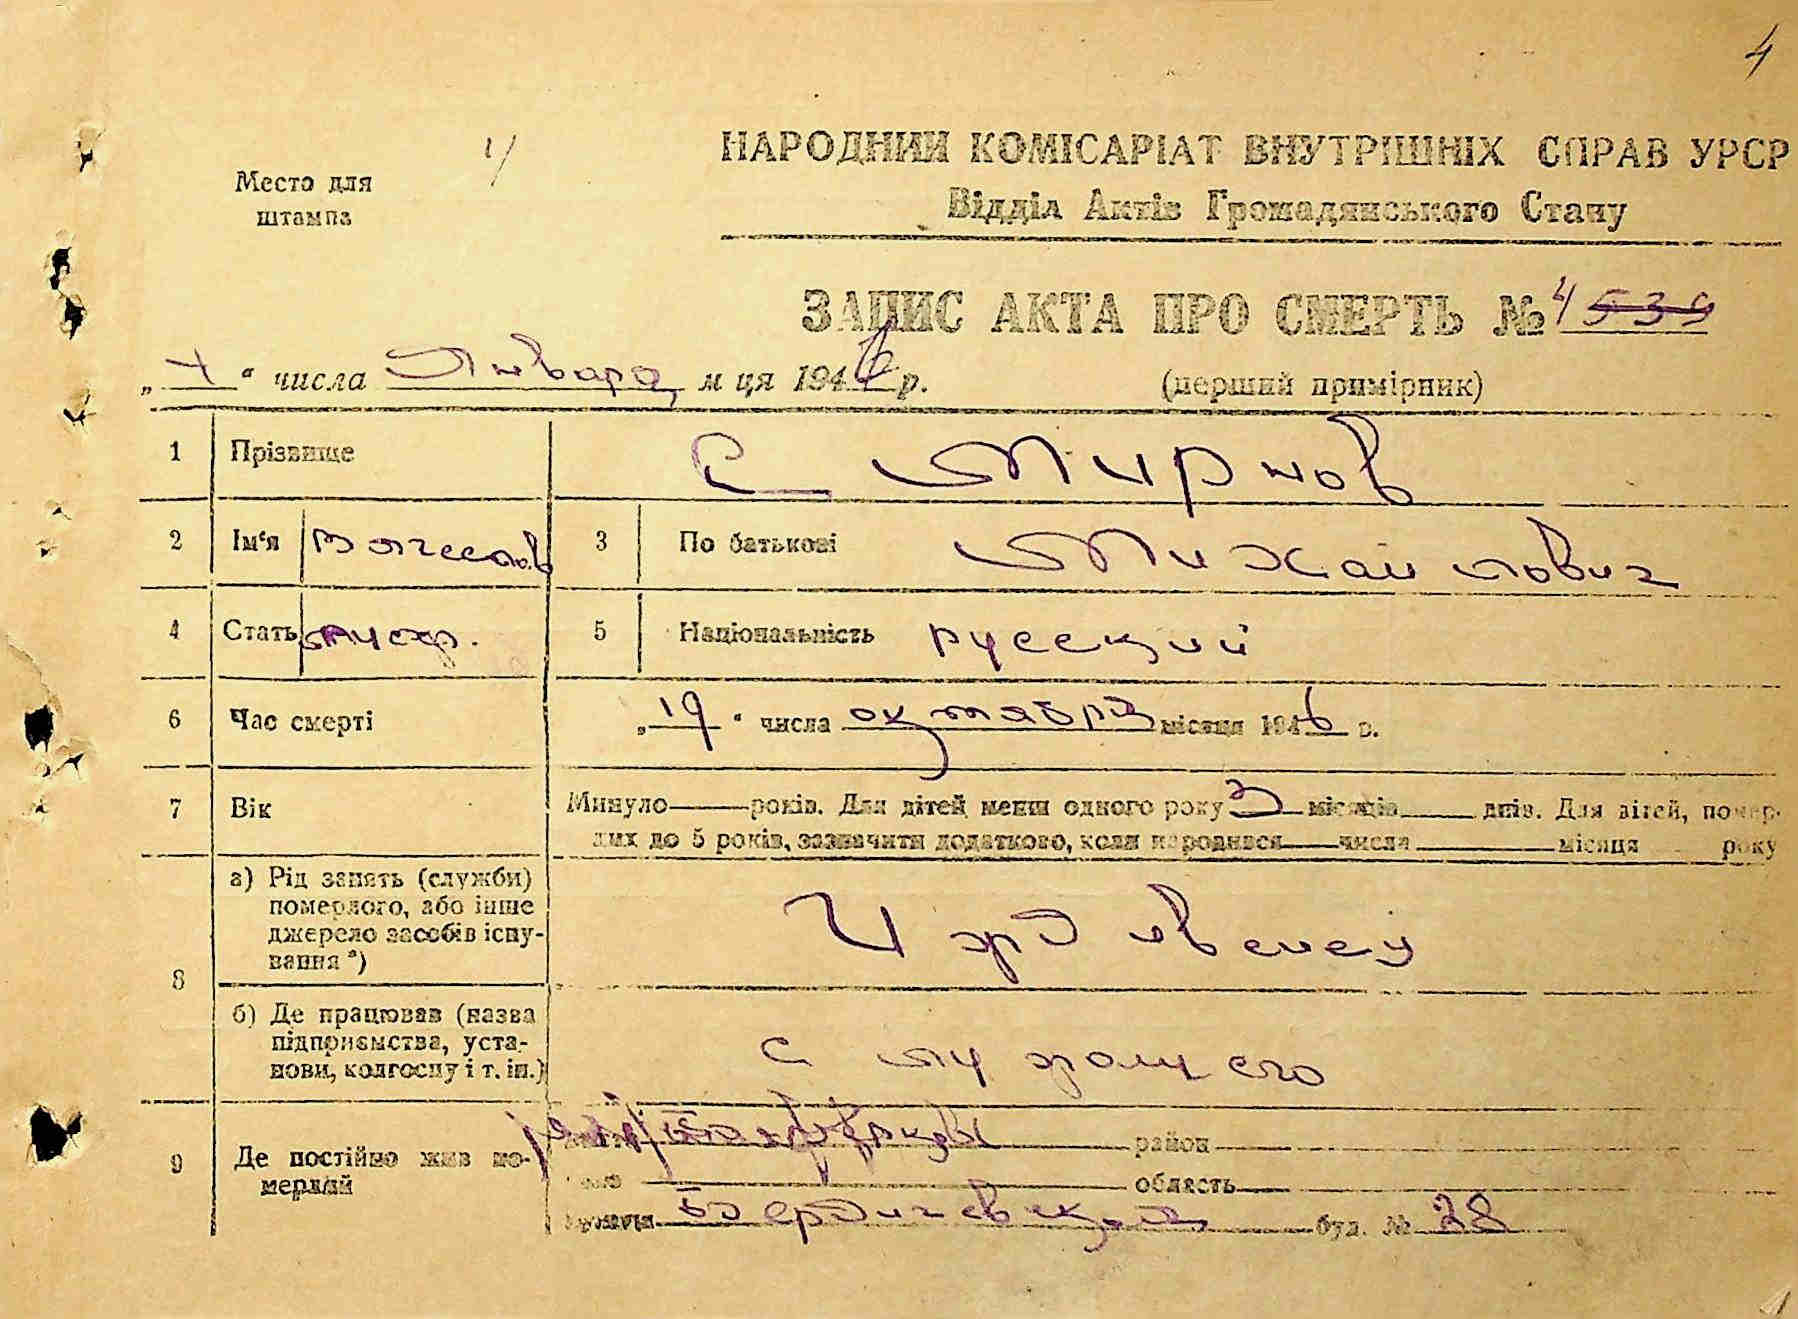 4
Место для
штампа
НАРОДНИЙ КОМІСАРІАТ ВНУТРІШНІХ СПРАВ УРСР
Відділ Актів Громадянського Стану
ЗАПИС АКТА ПРО СМЕРТЬ № 4 539
„ 4 “ числа Января м ця 194 р. (перший примірник)
1 Прізвище Смирнов
2 Ім'я Вячеслов 3 По батькові Михайлович
4 Стать муж. 5 Національність русский
6 Час смерті „ 19 “ числа октября місяця 194 р.
7 Вік Минуло — років. Для дітей менш одного року 3 місяців — днів. Для дітей, помер-
лих до 5 років, зазначити додатково, коли народився — числа — місяця — року
8 а) Рід занять (служби)
померлого, або інше
джерело засобів існу-
вання
Иждивенец
б) Де працював (назва
підприємства, уста-
нови, колгоспу і т. ін.)
с
9 Де постійно жив по-
мерлий
район
область
Бердичевская буд. № 28